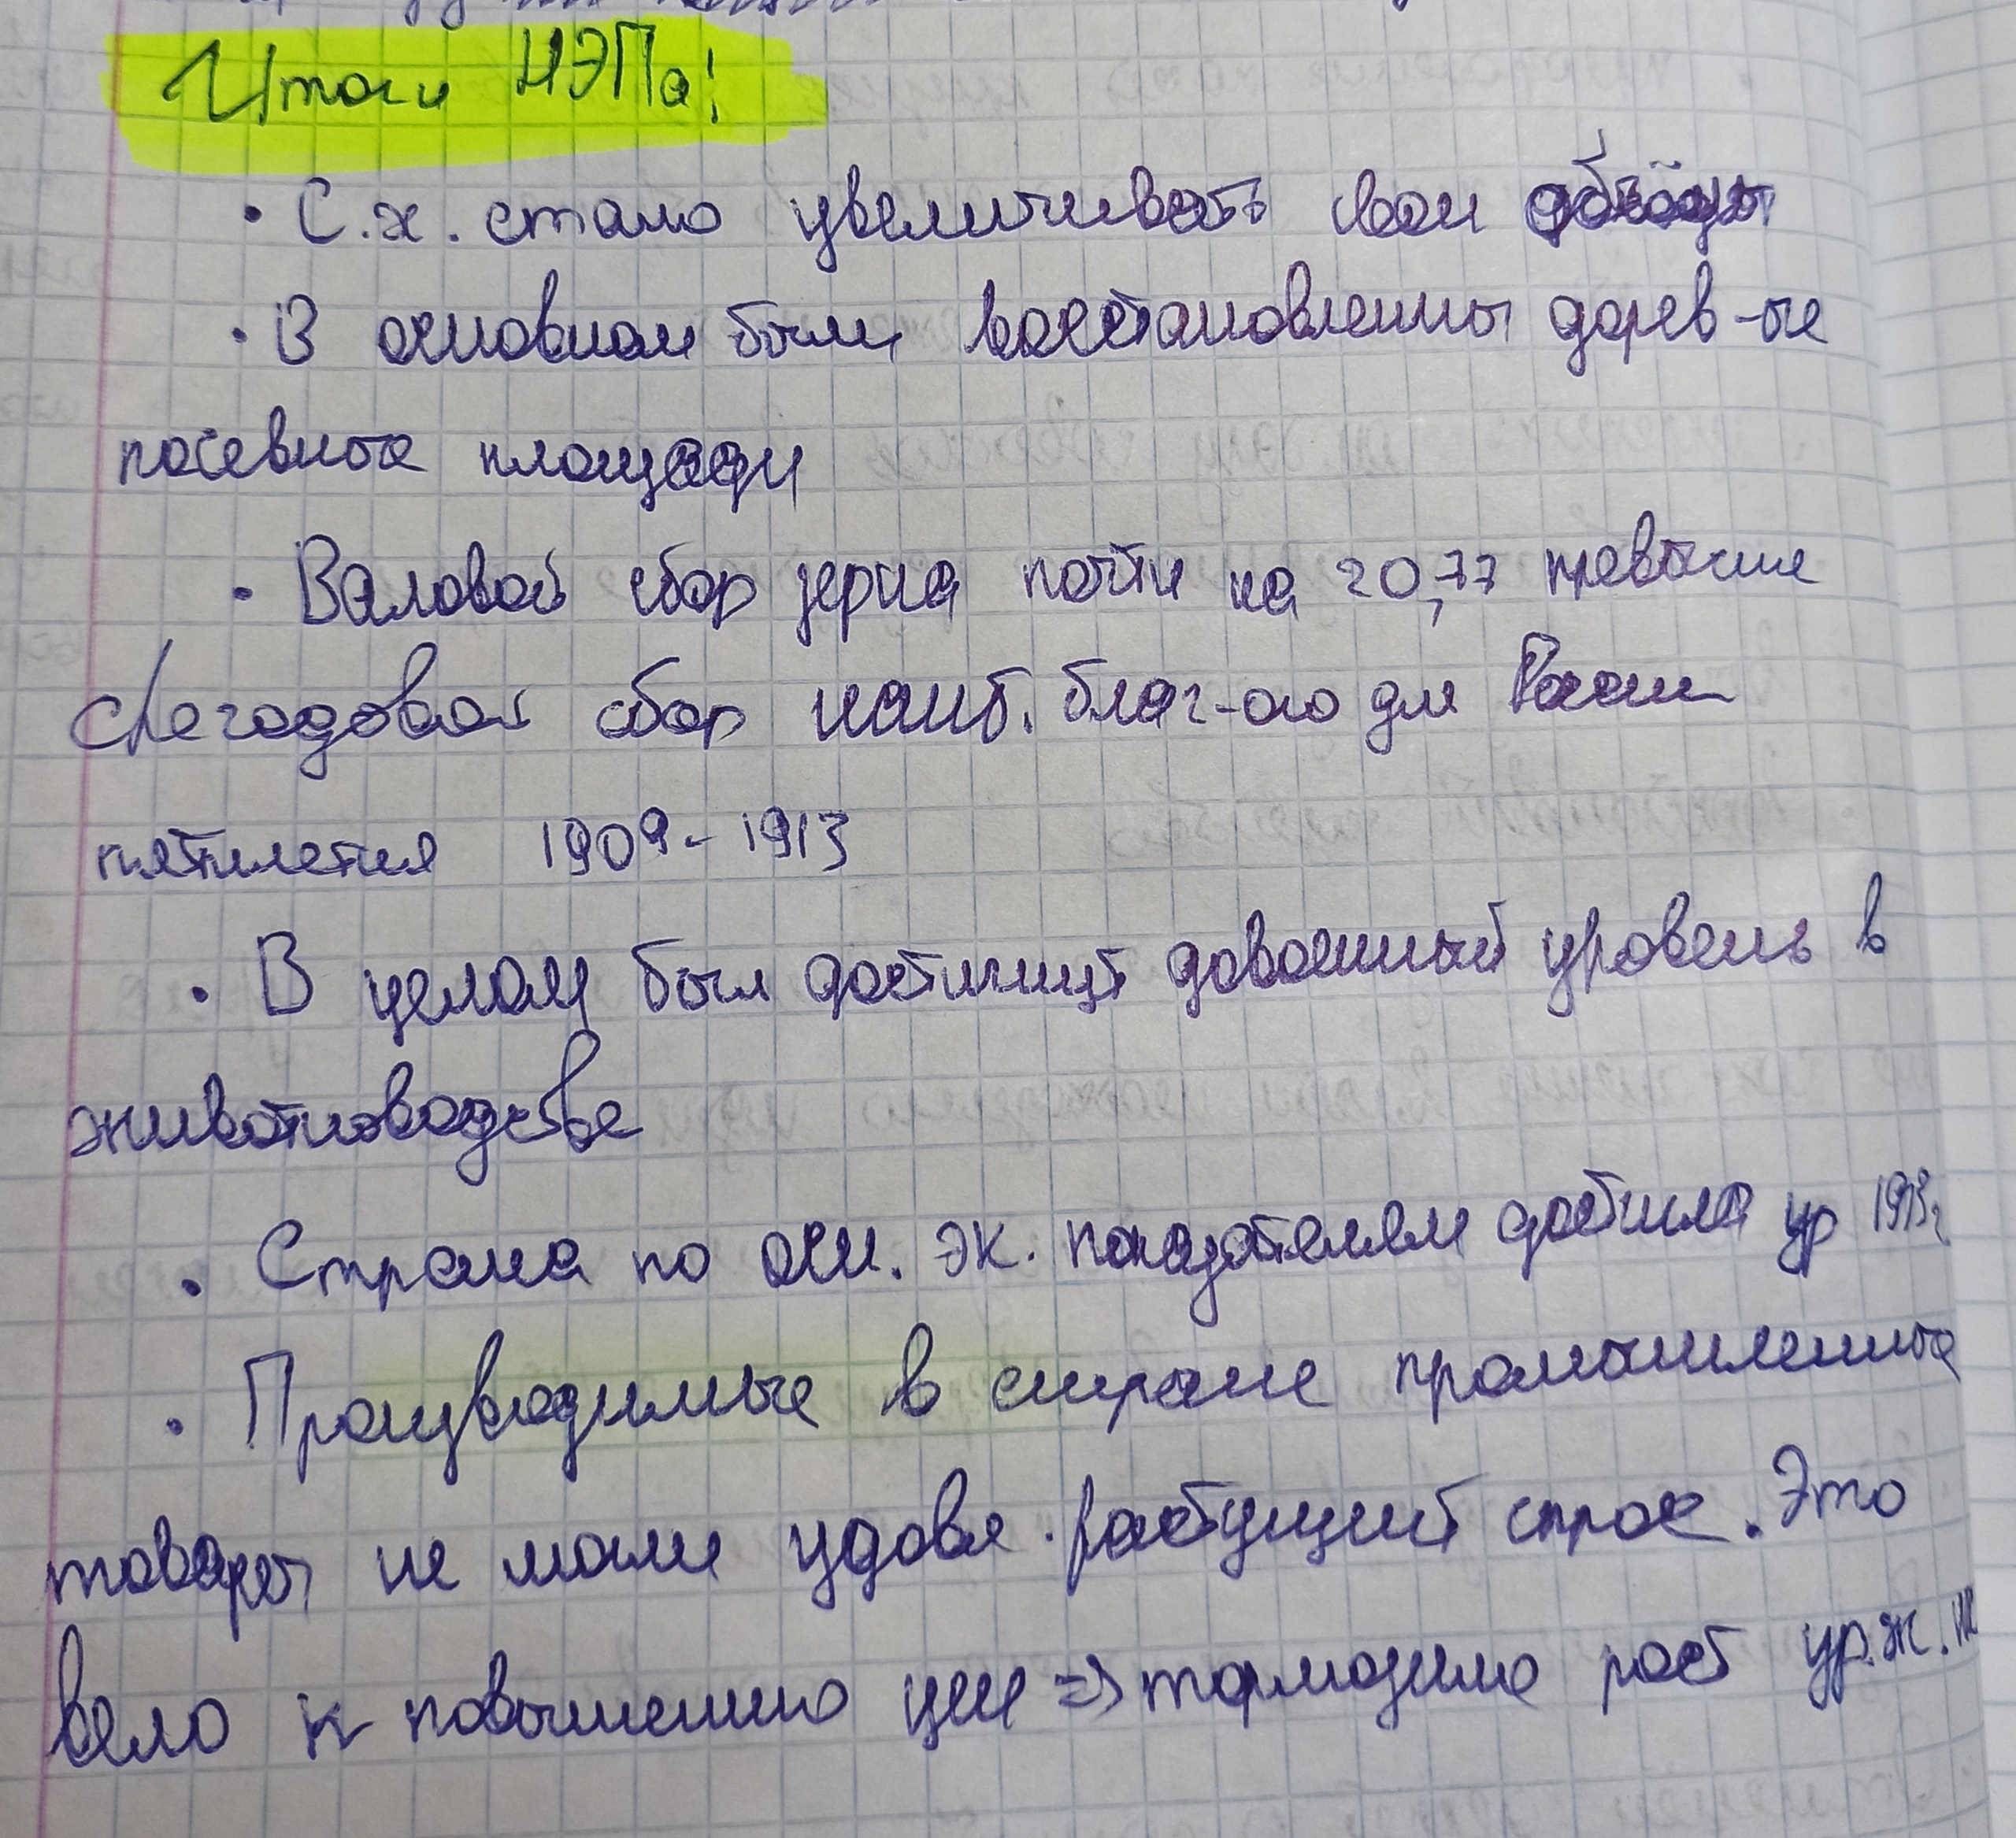 Итоги НЭПа!
• С.х. стало увеличивать свои объёмы
• В основном были восстановленны дорев-ые
посевные площади
• Валовой сбор зерна почти на 20,77 превысие
сбор наиб. благ-ого для России
пятилетия 1909-1913
• В целом был достигнут довоенный уровень в
животноводстве
• Страна по осн. эк. показателям достигла ур 1913г
• Производимые в стране промышленные
товары не могли удовл. растущий спрос. Это
вело к повышению цен => тормозило рост ур.ж.